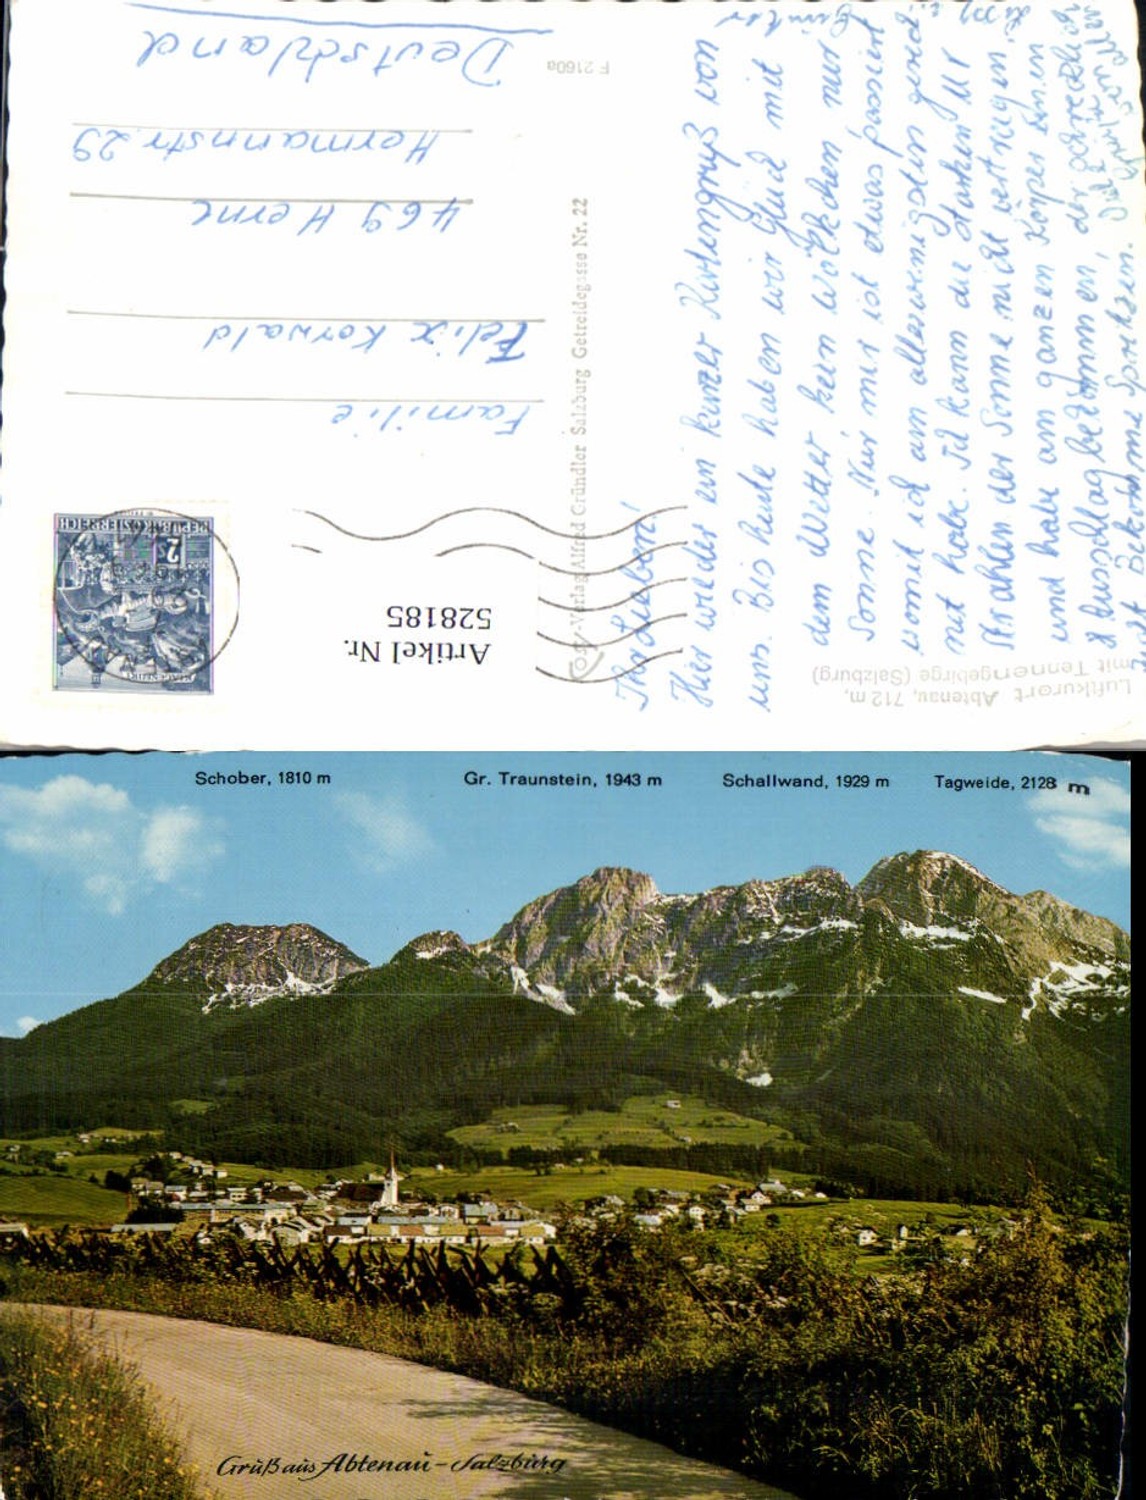 Luftkurort Abtenau, 712 m,
mit Tennengebirge (Salzburg)
Ihr Lieben!
Hier wieder ein kurzer Kartengruß von
uns. Bis heute haben wir Glück mit
dem Wetter kein Wölkchen nur
Sonne. Nur mir ist etwas passiert
womit ich am allerwenigsten gerech
net habe. Ich kann die starken UV
Strahlen der Sonne nicht vertragen
und habe am ganzen Körper einen
Ausschlag bekommen, der schrecklich
juckt. Bekomme Spritzen.
Cosy-Verlag Alfred Gründler Salzburg Getreidegasse Nr. 22
F 2160a
REPUBLIK ÖSTERREICH
2
Artikel Nr.
528185
Familie
Felix Korwald
469 Herne
Hermannstr. 29
Deutschland
Schober, 1810 m
Gr. Traunstein, 1943 m
Schallwand, 1929 m
Tagweide, 2128 m
Gruß aus Abtenau - Salzburg